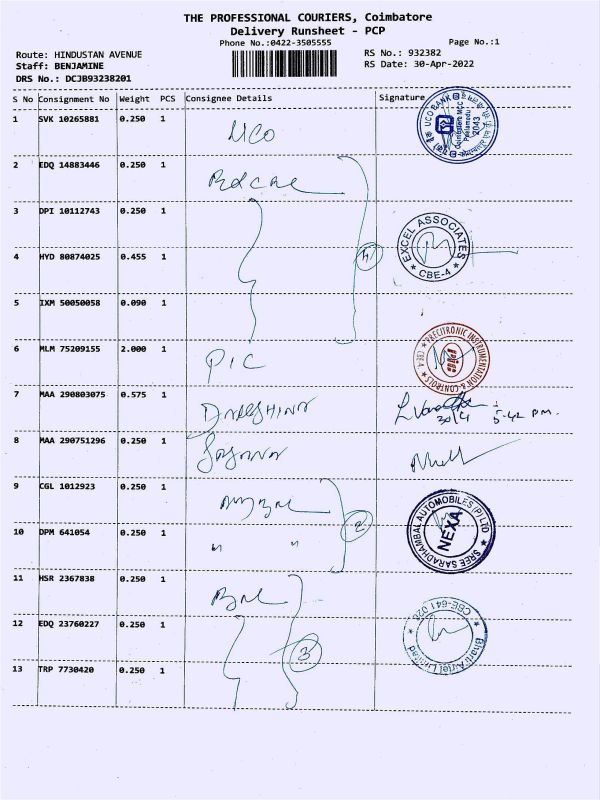 THE PROFESSIONAL COURIERS, Coimbatore
Delivery Runsheet - PCP
Phone No.:0422-3505555
Page No.:1
Route: HINDUSTAN AVENUE
RS No.: 932382
Staff: BENJAMINE
RS Date: 30-Apr-2022
DRS No.: DCJB93238201
S No Consignment No Weight PCS Consignee Details Signature
1 SVK 10265881 0.250 1 UCO
UCO BANK
Coimbatore MCC
Peelamedu
2043
2 EDQ 14883446 0.250 1
3 DPI 10112743 0.250 1
EXCEL ASSOCIATES
CBE-4
4 HYD 80874025 0.455 1 4
5 IXM 50050058 0.090 1
6 MLM 75209155 2.000 1 PIC
PRECITRONIC INSTRUMENTATION & CONTROLS CBE-4
7 MAA 290803075 0.575 1
30/4 5-42 PM.
8 MAA 290751296 0.250 1
9 CGL 1012923 0.250 1
SREE SARADHAMBAL AUTOMOBILES (P) LTD
NEXA
2
10 DPM 641054 0.250 1 " "
11 HSR 2367838 0.250 1
CBE-641 028
Bharti Airtel Limited
12 EDQ 23760227 0.250 1
3
13 TRP 7730420 0.250 1